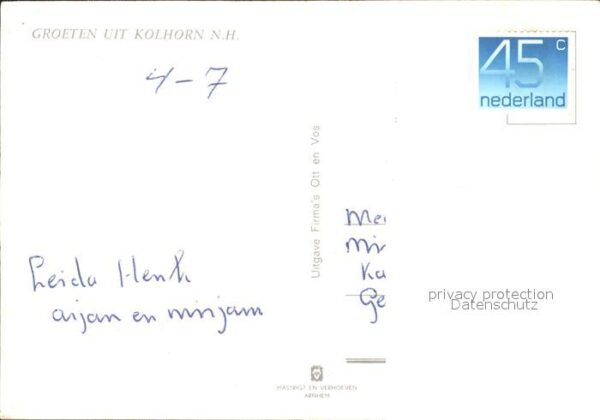 GROETEN UIT KOLHORN N.H.
4-7
45 c
nederland
Uitgave Firma's Ott en Vos
Leida Henk
arjan en mirjam
privacy protection
Datenschutz
MASTRIGT EN VERHOEVEN
ARNHEM